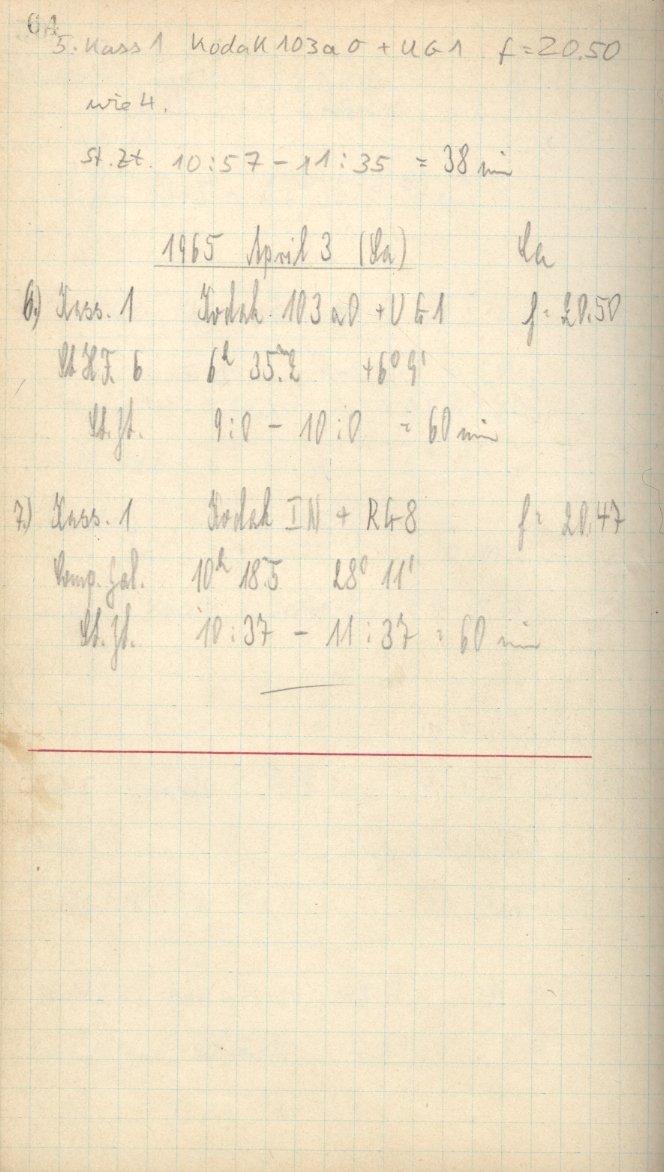 64
5. Kass 1 Kodak 103a0 + UG1 f = 20.50
wie 4.
St. Zt. 10:57 – 11:35 = 38 min
1965 April 3 (Sa)
6.) Kass. 1 Kodak 103a0 + UG1 f = 20.50
6 6h 35m.2 +6° 9'
St. Zt. 9:0 – 10:0 = 60 min
7.) Kass. 1 Kodak IN + RG8 f = 20.47
Comp. Gal. 10h 18.5 28° 11'
St. Zt. 10:37 – 11:37 = 60 min